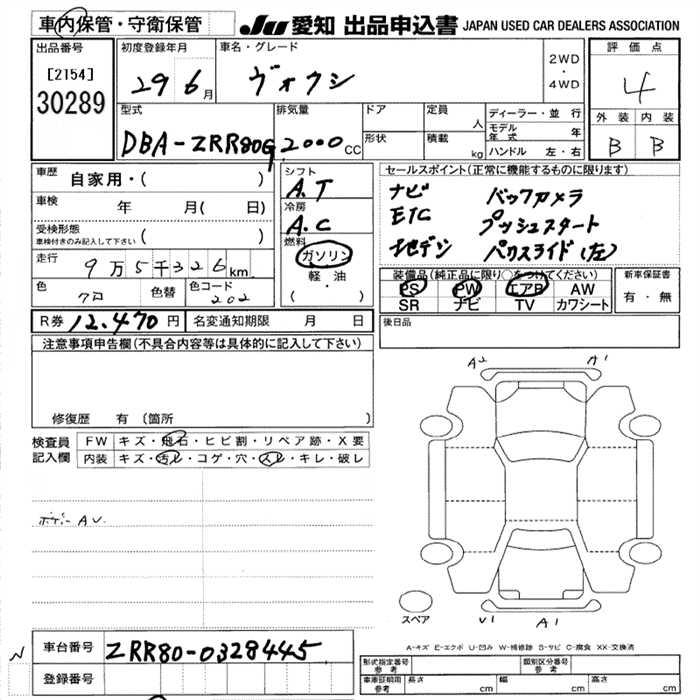 車内保管・守衛保管
JU 愛知 出品申込書 JAPAN USED CAR DEALERS ASSOCIATION
出品番号
[2154]
30289
初度登録年月
29 6月
車名・グレード
ヴォクシ
2WD
・
4WD
評価点
4
外装 内装
B B
型式
DBA-ZRR80G
排気量
2000cc
ドア
形状
定員
人
積載
kg
ディーラー・並行
モデル年式 年
ハンドル 左・右
車歴
自家用・( )
車検 年 月( 日)
受検形態
車検付きのみ記入して下さい ( )
走行
9万5千326km
色
クロ
色替
色コード
202
シフト
A.T
冷房
A.C
燃料
ガソリン
軽・油
( )
セールスポイント(正常に機能するものに限ります)
ナビ バックカメラ
ETC プッシュスタート
地デジ パワスライド(左)
装備品(純正品に限り○をつけてください)
PS PW エアB AW
SR ナビ TV カワシート
新車保証書
有・無
R券 12,470円
名変通知期限 月 日
後日品
注意事項申告欄(不具合内容等は具体的に記入して下さい)
修復歴 有 (箇所 )
検査員
記入欄
FW キズ・飛石・ヒビ割・リペア跡・X要
内装 キズ・汚レ・コゲ・穴・スレ・キレ・破レ
ボデー AU
A2 A1
スペア
U1 A1
A-キズ E-エクボ U-凹み W-補修跡 S-サビ C-腐食 XX-交換済
N
車台番号 ZRR80-0328445
登録番号
形式指定番号 参考
類別区分番号 参考
車庫証明用 参考
長さ cm
幅 cm
高さ cm